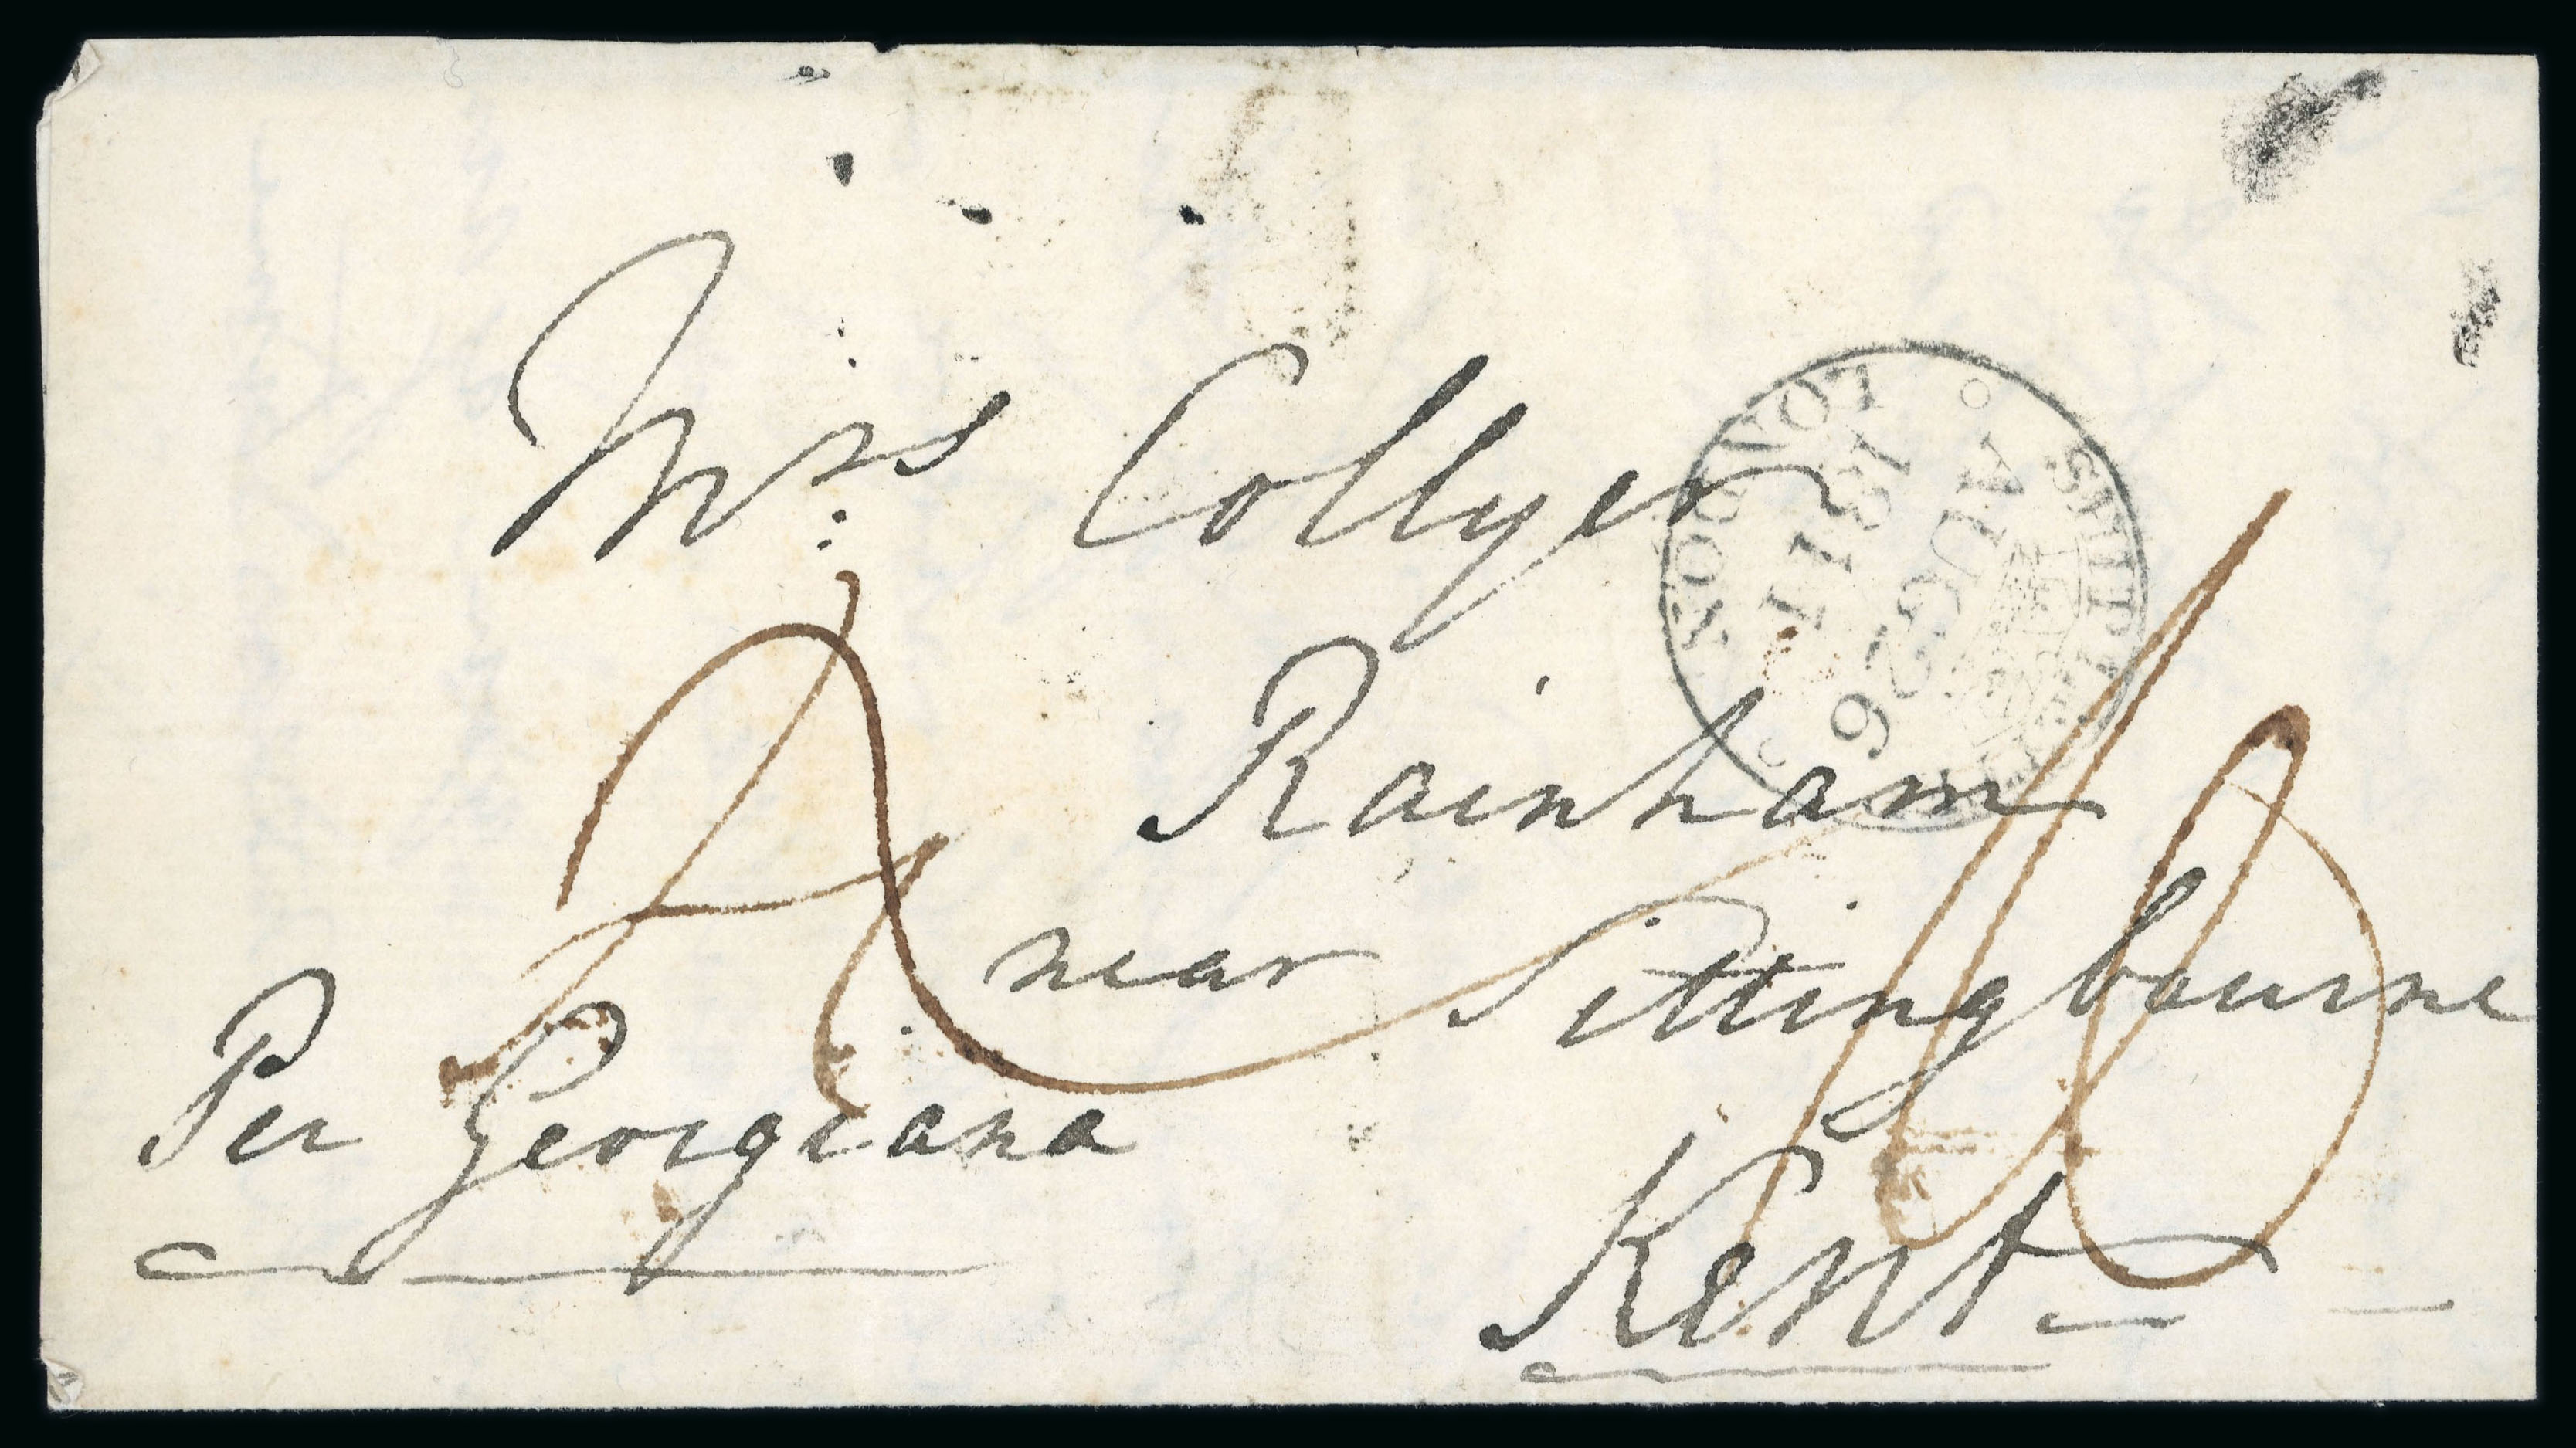 Mrs Collyer
Rainham
near Sittingbourne
Kent
Per Georgiana
SHIP LETTER
AUG 26
1841
LONDON